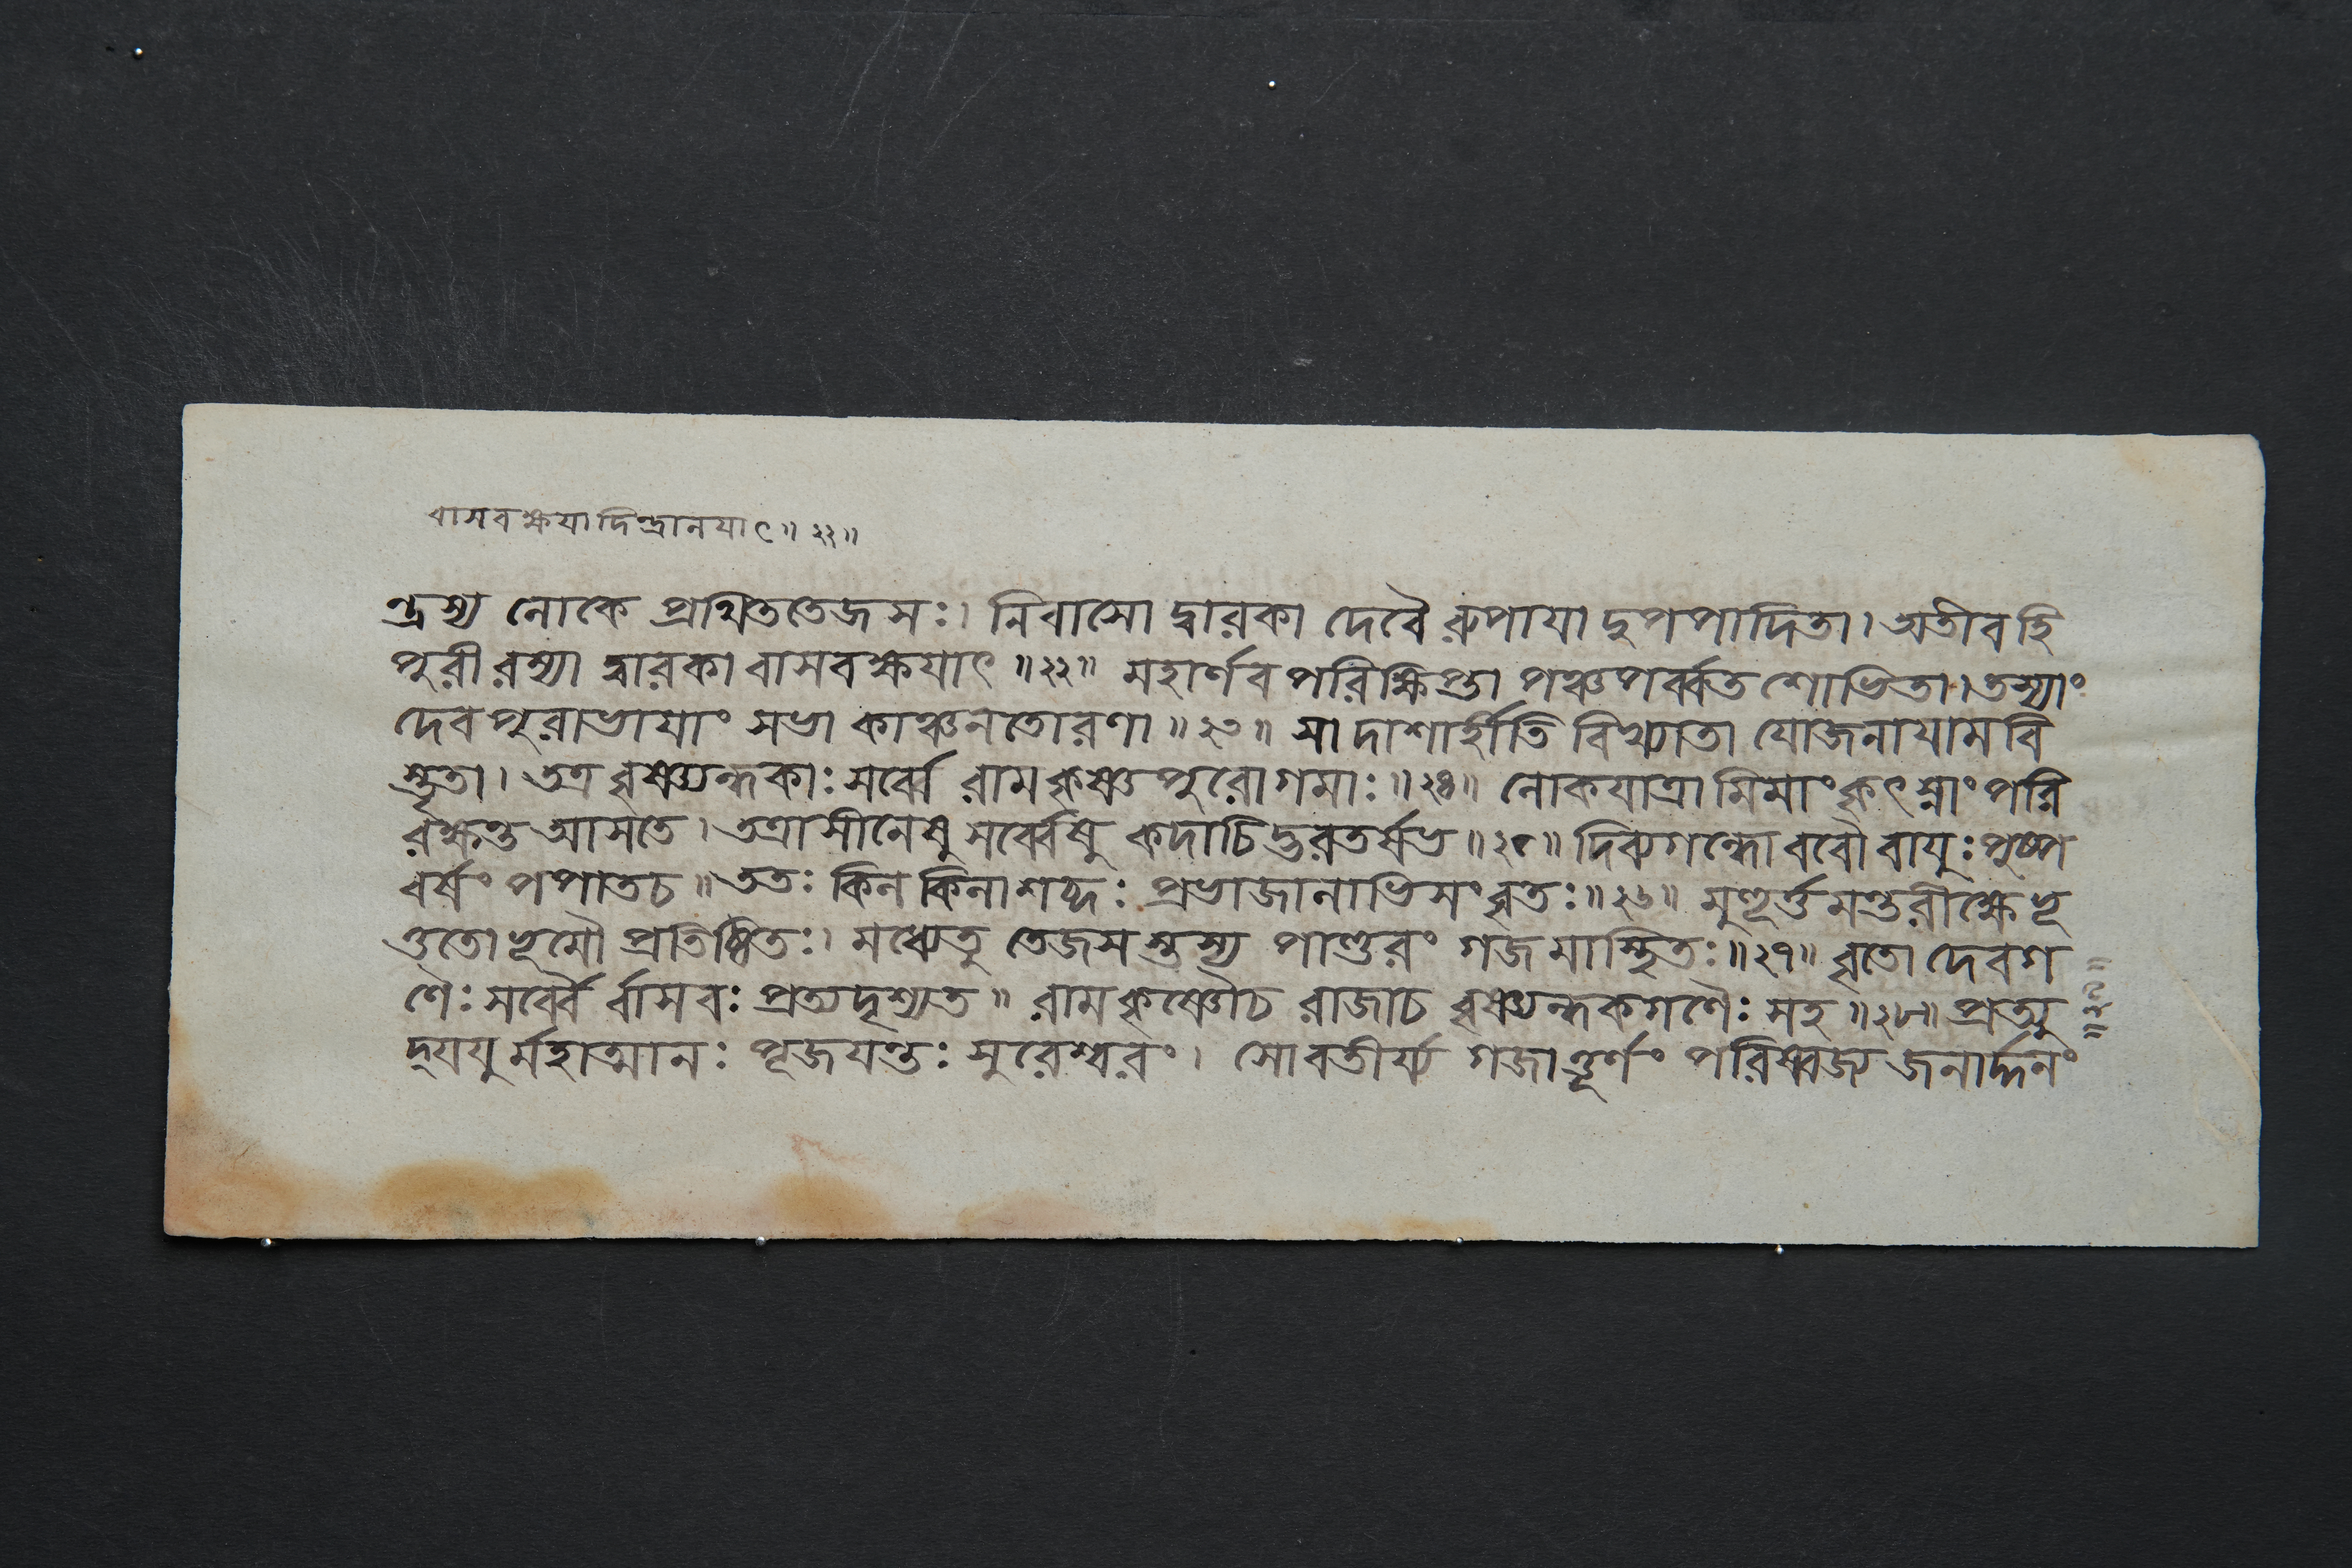 বাসবক্ষয়াদিন্দ্রানয়াৎ॥ ২২॥
ন্দ্রস্য লোকে প্রথিততেজসঃ। নিবাসো দ্বারকা দেবৈ রুপায়া দুপপাদিতা। অতীব হি
পুরী রম্যা দ্বারকা বাসবক্ষয়াৎ ॥২২॥ মহার্ণব পরিক্ষিপ্তা পঞ্চপর্ব্বত শোভিতা। তস্যাং
দেব পুরাভায়াং সভা কাঞ্চনতোরণা ॥২৩॥ সা দাশার্হীতি বিখ্যাতা যোজনায়ামবি
স্তৃতা। তত্র বৃষ্ণ্যন্ধকাঃ সর্ব্বে রামকৃষ্ণপুরোগমাঃ ॥২৪॥ লোকযাত্রা মিমাং কৃৎস্নাং পরি
রক্ষন্ত আসতে। তত্রাসীনেষু সর্ব্বেষু কদাচিদ্ভরতর্ষভ ॥২৫॥ দিব্যগন্ধো ববৌ বায়ুঃ পুষ্প
বর্ষং পপাতচ॥ ততঃ কিল কিলাশব্দঃ প্রভাজালাভিসংবৃতঃ ॥২৬॥ মুহূর্ত্তমন্তরীক্ষে ভূ
ত্ততো ভূমৌ প্রতিষ্ঠিতঃ। মধ্যেতু তেজসস্তস্য পাণ্ডুরং গজমাস্থিতঃ ॥২৭॥ বৃতো দেবগ
ণৈঃ সর্ব্বৈ র্বাসবঃ প্রত্যদৃশ্যত॥ রামকৃষ্ণৌচ রাজাচ বৃষ্ণ্যন্ধকগণৈঃ সহ ॥২৮॥ প্রত্যু
দ্যযু র্মহাত্মানঃ পূজয়ন্তঃ সুরেশ্বরং। সোবতীর্য্য গজাত্তূর্ণং পরিষ্বজ্য জনার্দ্দনং